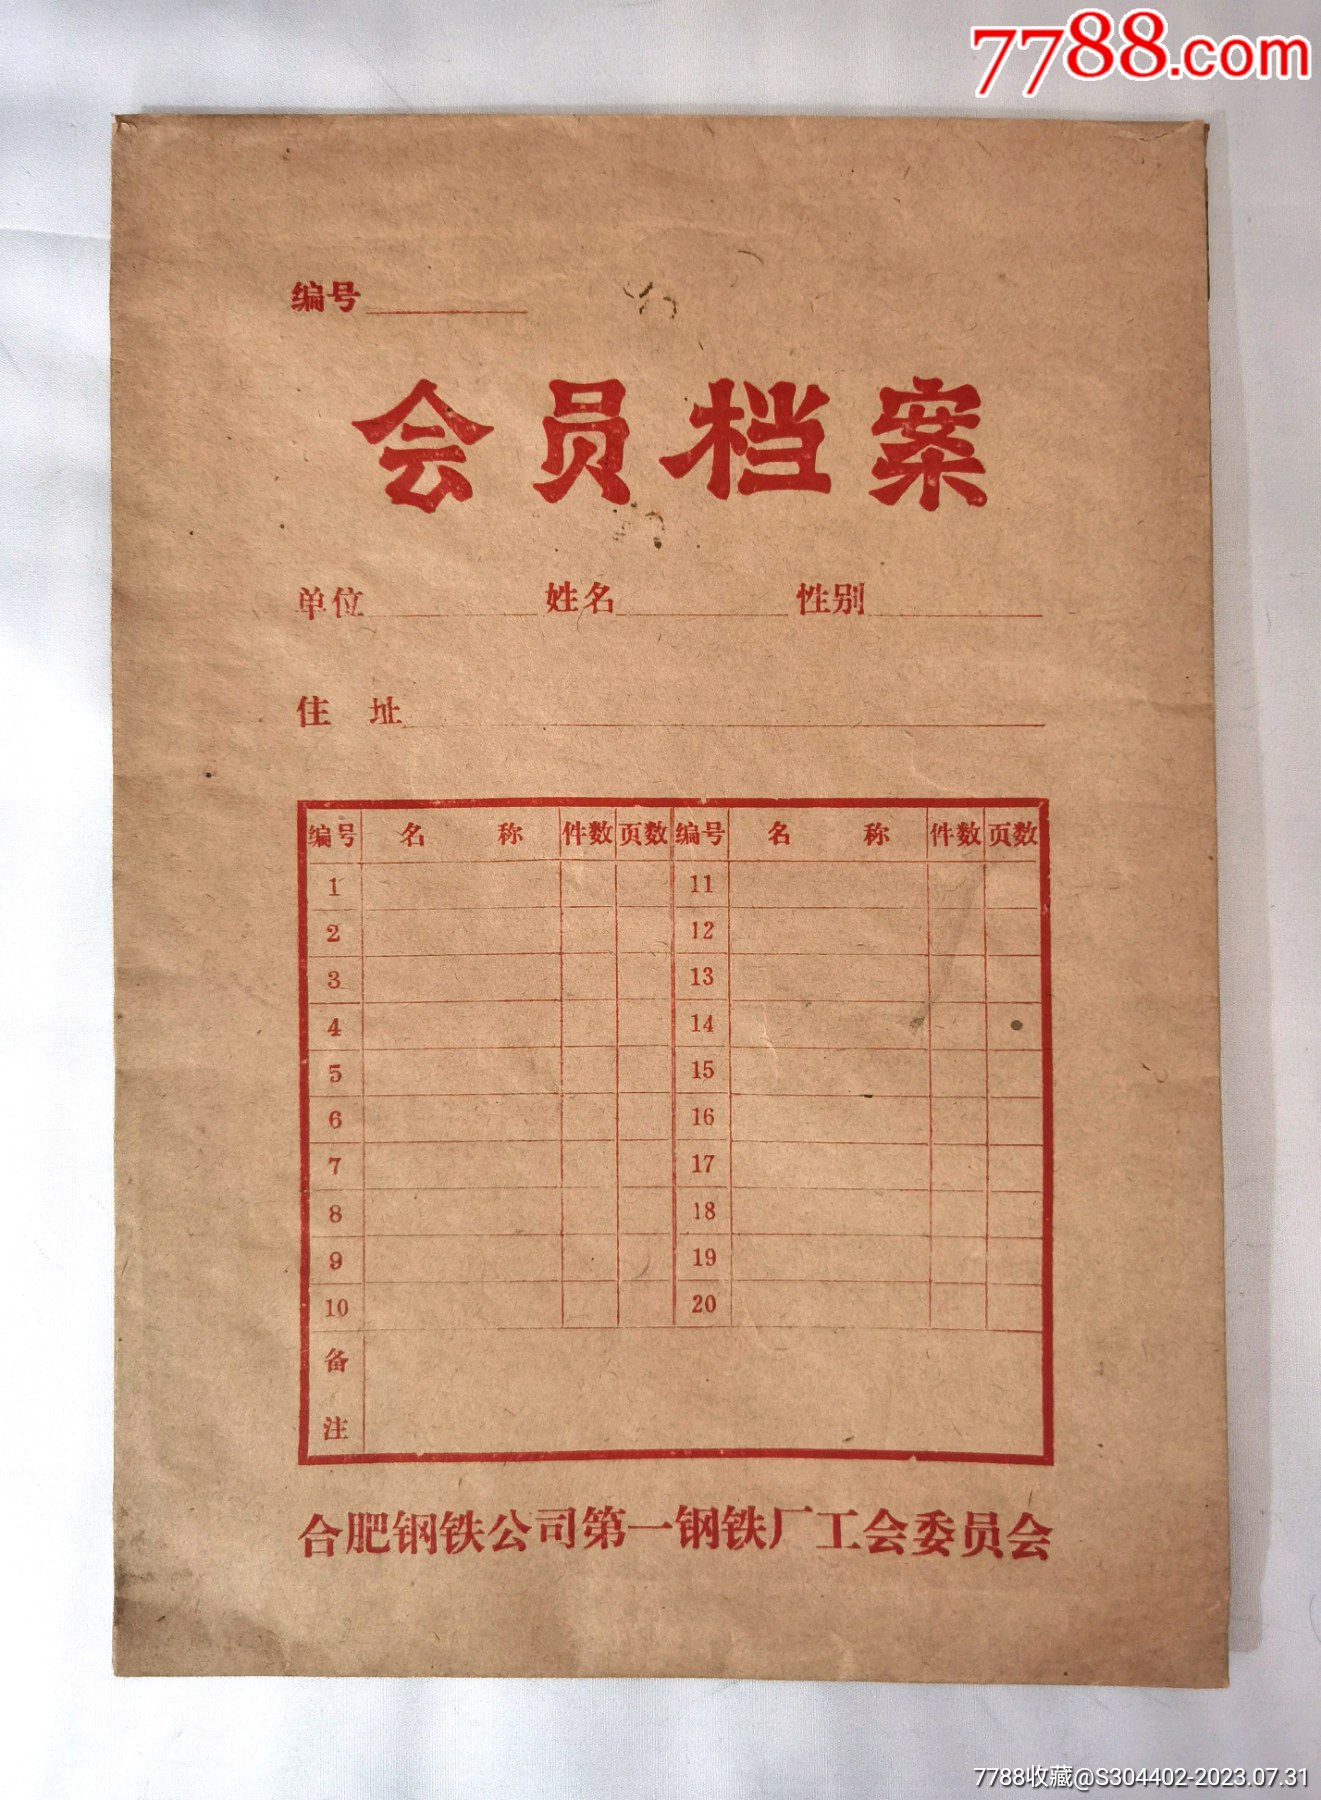 7788.com
编号
会员档案
单位 姓名 性别
住 址
编号 名 称 件数 页数 编号 名 称 件数 页数
1 11
2 12
3 13
4 14
5 15
6 16
7 17
8 18
9 19
10 20
备
注
合肥钢铁公司第一钢铁厂工会委员会
7788收藏@S304402-2023.07.31